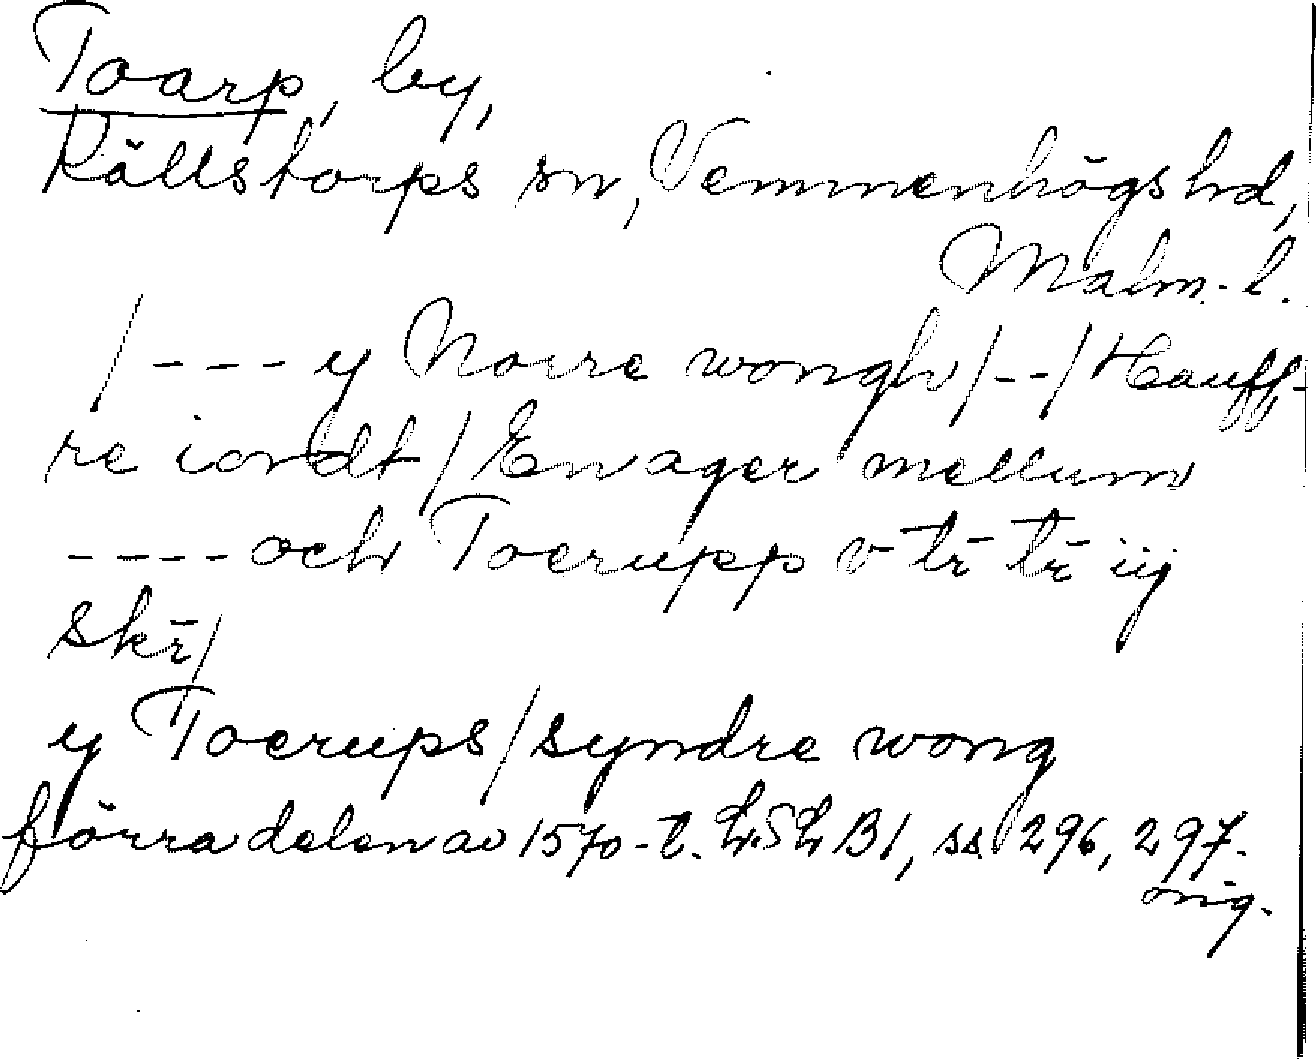 Toarp, by,
Källstorps sn, Vemmenhögs hd,
Malm. l.
/ - - - y Norre wongh / - - / Hauff-
re iordt / En ager mellum
- - - - och Toerupp v- tr̄ tr̄ iij
skr̄ /
y Toerups / syndre wong
förra delen av 1570-t. LSL B1, ss 296, 297.
orig.